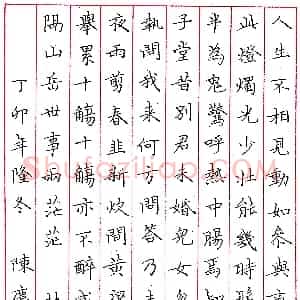 人生不相見動如參與
此燈燭光少壯能幾時
半為鬼驚呼熱中腸焉
子堂昔別君未婚兒女
執問我來何方問答乃
夜雨剪春韭新炊間黃
舉累十觴十觴亦不醉
陽山岳世事兩茫茫
丁卯年隆冬 陳
Shufaziliao.com